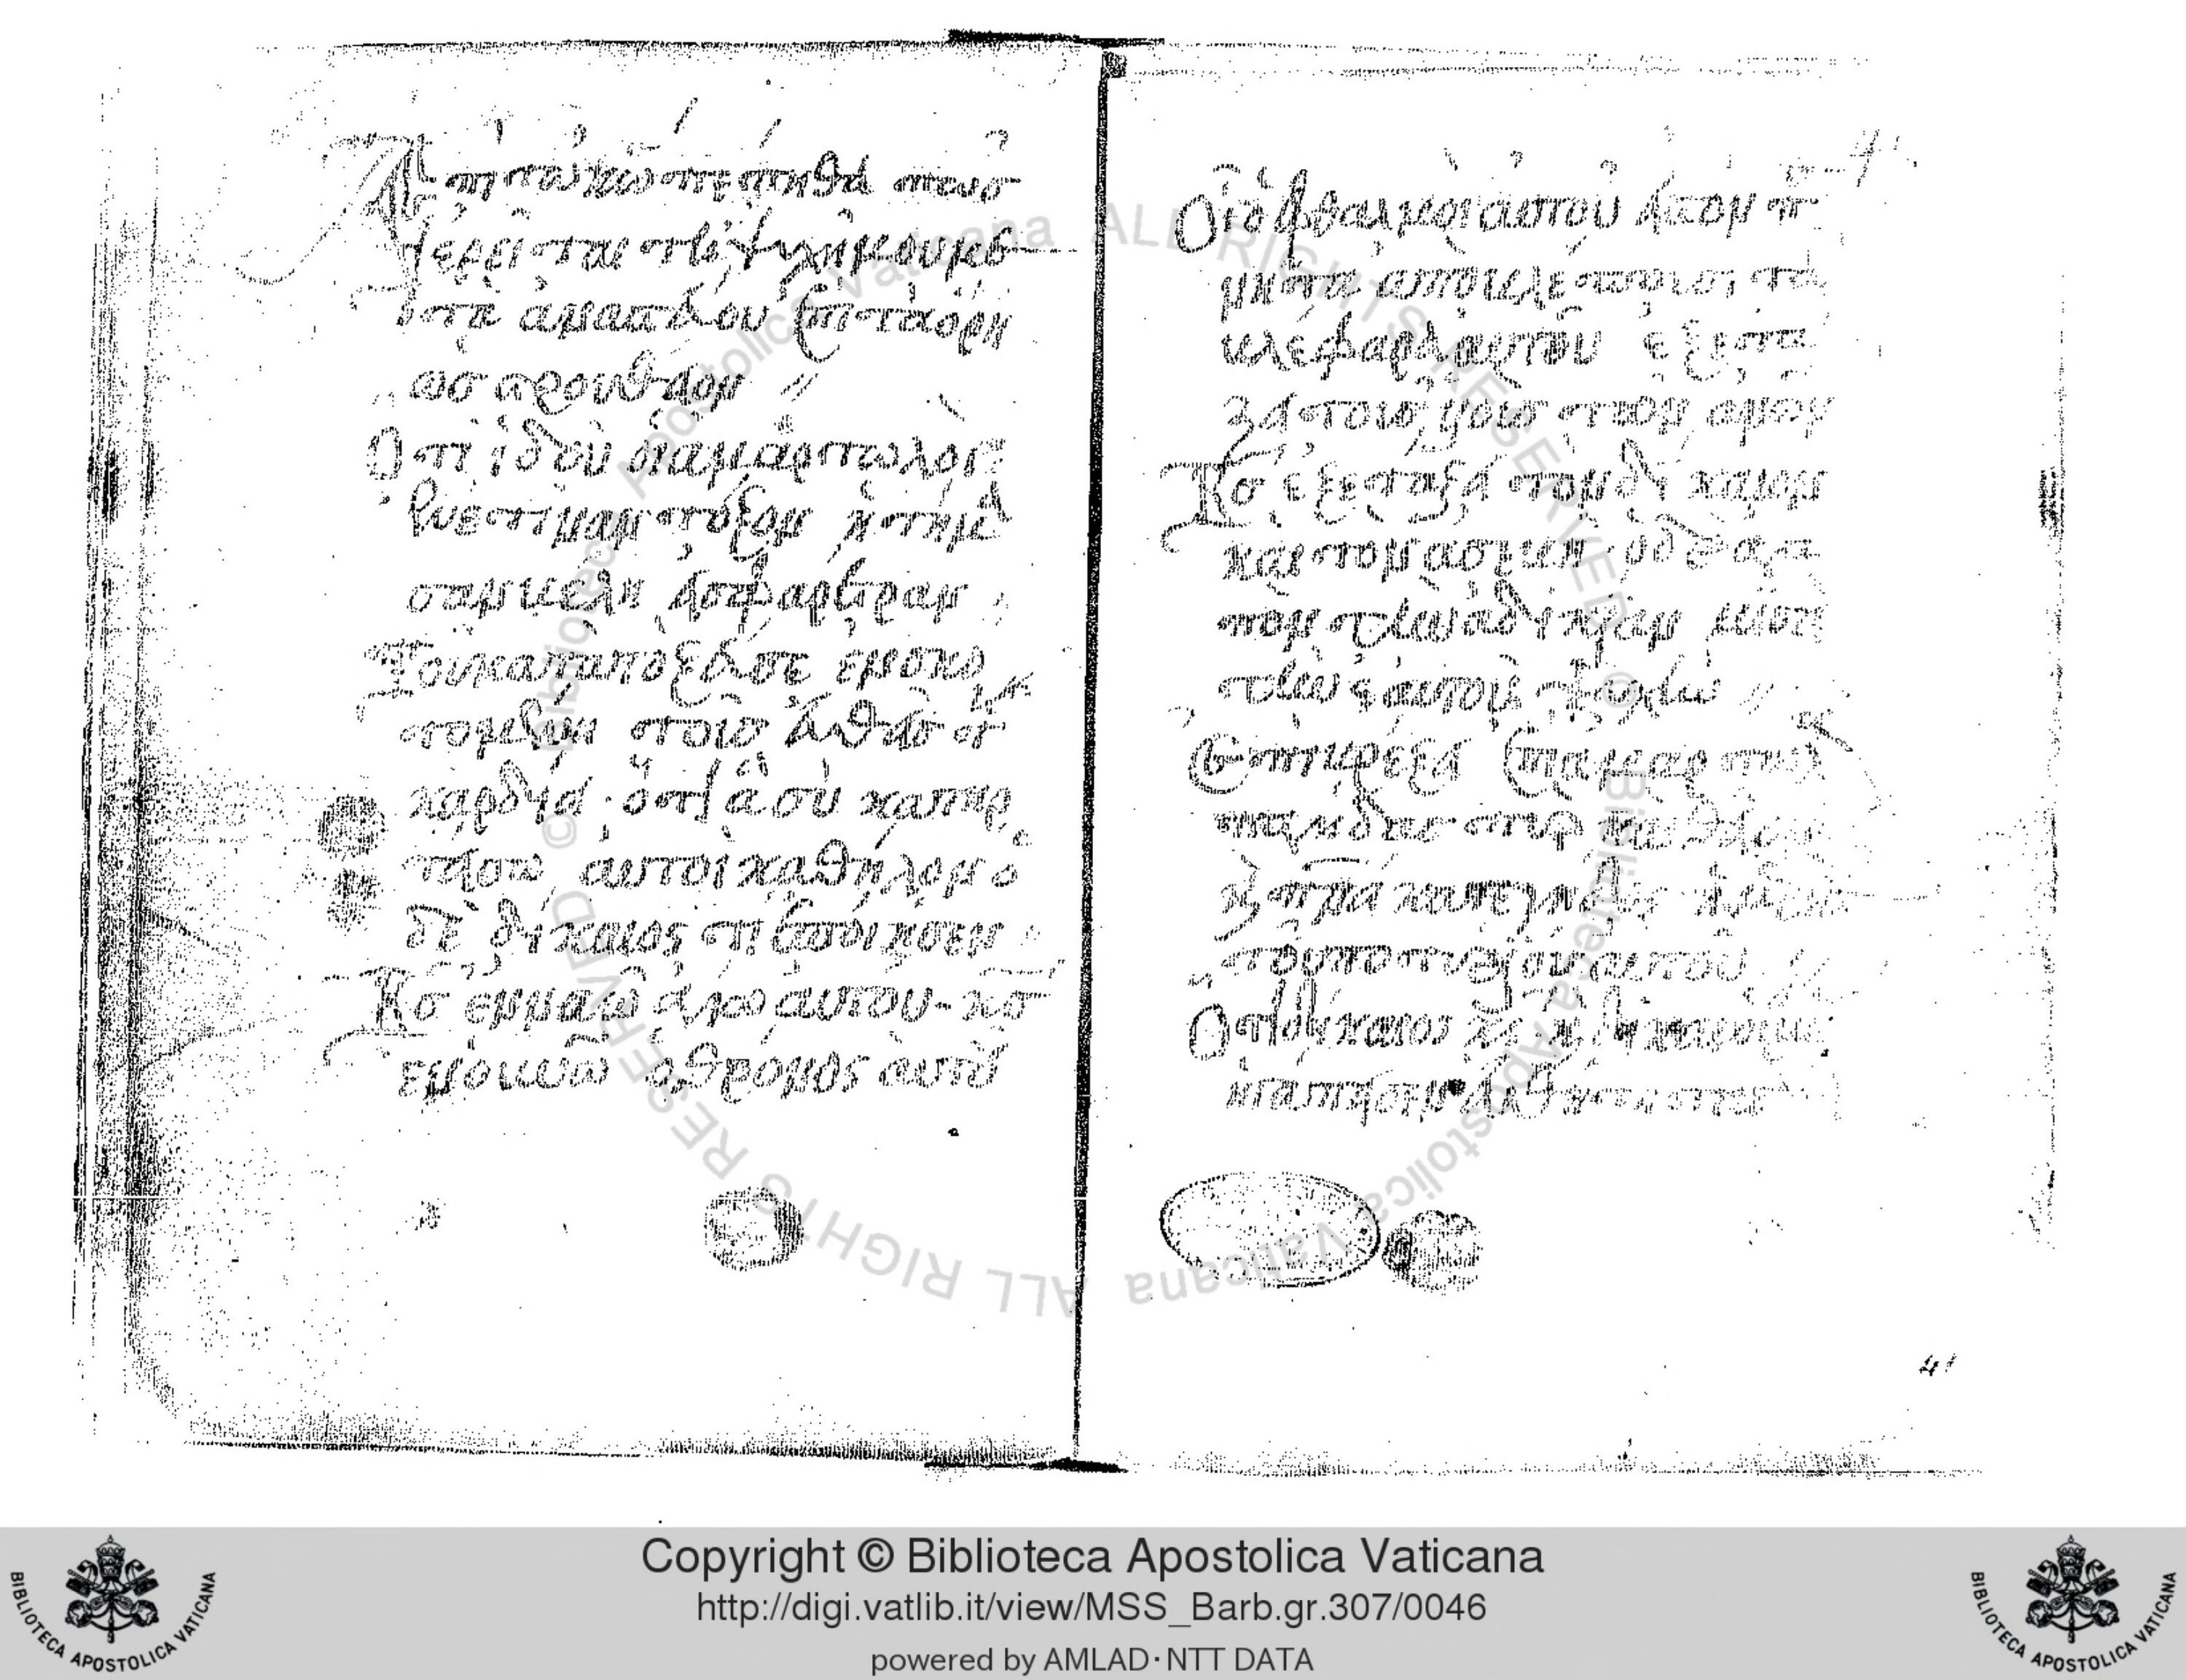 Ἐπι τῶ κῶ πέποιθα πῶσ
ἐρεῖται τῆ ψυχῆ μου με
ταναστεύου ἐπι τὰ ὄρη
ὡσ στρουθίον
Ὅτι ἰδοὺ οἱ ἁμαρτωλοὶ
ἐνέτειναν τόξον ἡτοίμα
σαν βέλη εἰσ φαρέτραν
Τοῦ κατατοξεῦσαι ἐν σκο
τομήνη τοὺσ εὐθεῖσ τῆ
καρδία ὅτι ἃ σὺ κατηρ
τίσω αὐτοὶ καθῆλον ὁ
δὲ δίκαιος τί ἐποίησεν
Κσ ἐν ναῶ ἁγίω αὐτοῦ κσ
ἐν οὐνῶ ὁ θρόνος αὐτοῦ
Οἱ ὀφθαλμοὶ αὐτοῦ εἰσ τὸν π
νητα ἀποβλέπουσι τὰ
βλέφαρα αὐτοῦ ἐξετά
ζει τοὺσ υἱοὺσ τῶν ἀνων
Κσ ἐξετάζει τὸν δίκαιον
καὶ τὸν ἀσεβῆ ὁ δὲ ἀγα
πῶν τὴν ἀδικίαν μισεῖ
τὴν ἑαυτοῦ ψυχήν
Ἐπιβρέξει ἐπὶ ἁμαρτωλ
παγίδασ πῦρ καὶ θεῖον
κ πνα καταιγίδος ἡ μερὶσ
τοῦ ποτηρίου αὐτοῦ
Ὅτι δίκαιοσ κσ κ δικαιοσύνασ
ἠγάπησεν εὐθύτητασ
41
Copyright © Biblioteca Apostolica Vaticana
http://digi.vatlib.it/view/MSS_Barb.gr.307/0046
powered by AMLAD·NTT DATA
BIBLIOTECA APOSTOLICA VATICANA
BIBLIOTECA APOSTOLICA VATICANA